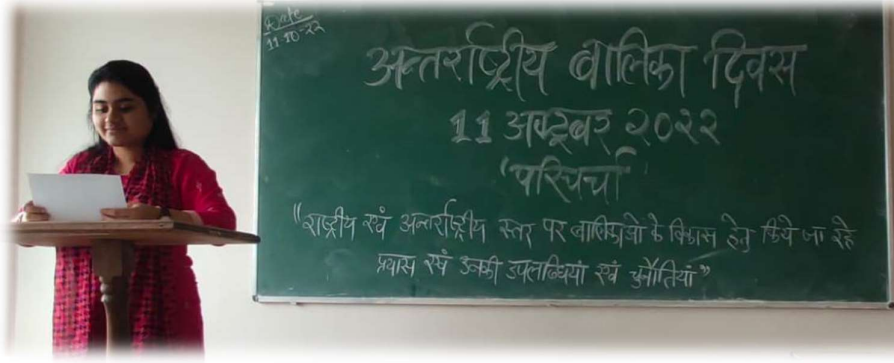 Date
11-10-22
अन्तर्राष्ट्रीय बालिका दिवस
11 अक्टूबर २०२२
'परिचर्चा'
"राष्ट्रीय एवं अन्तर्राष्ट्रीय स्तर पर बालिकाओ के विकास हेतु किये जा रहे
प्रयास एवं उनकी उपलब्धियां एवं चुनौतियां"